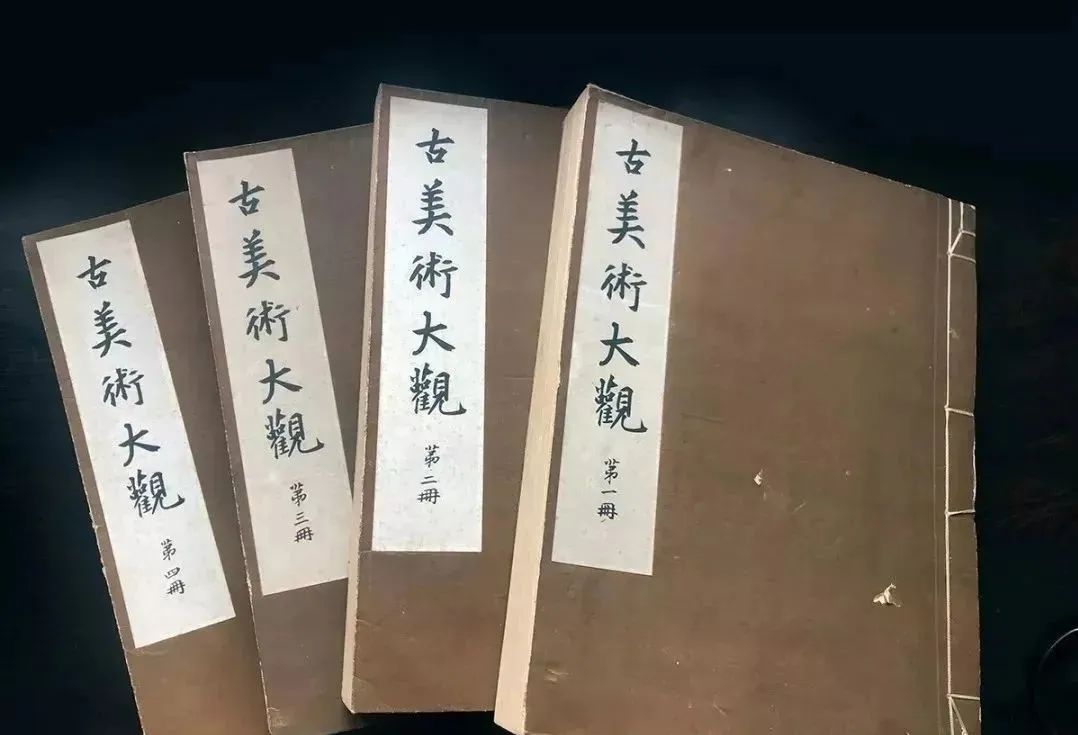 古美術大觀
第一冊
古美術大觀
第二冊
古美術大觀
第三冊
古美術大觀
第四冊